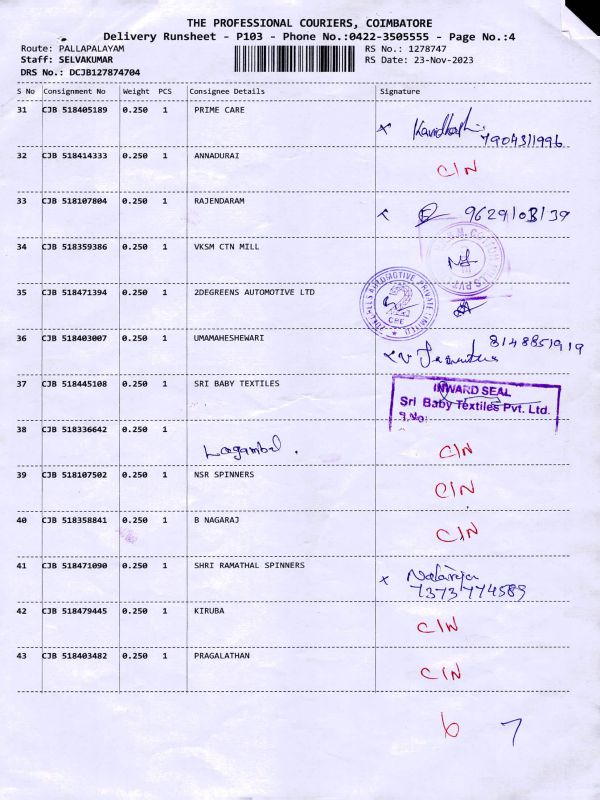 THE PROFESSIONAL COURIERS, COIMBATORE
Delivery Runsheet - P103 - Phone No.:0422-3505555 - Page No.:4
Route: PALLAPALAYAM RS No.: 1278747
Staff: SELVAKUMAR RS Date: 23-Nov-2023
DRS No.: DCJB127874704
S No Consignment No Weight PCS Consignee Details Signature
31 CJB 518405189 0.250 1 PRIME CARE
7904311996
32 CJB 518414333 0.250 1 ANNADURAI C/N
33 CJB 518107804 0.250 1 RAJENDARAM
34 CJB 518359386 0.250 1 VKSM CTN MILL
35 CJB 518471394 0.250 1 2DEGREENS AUTOMOTIVE LTD
CPE
36 CJB 518403007 0.250 1 UMAMAHESHEWARI 8148851919
37 CJB 518445108 0.250 1 SRI BABY TEXTILES
INWARD SEAL
Sri Baby Textiles Pvt. Ltd.
38 CJB 518336642 0.250 1
C/N
39 CJB 518107502 0.250 1 NSR SPINNERS C/N
40 CJB 518358841 0.250 1 B NAGARAJ C/N
41 CJB 518471090 0.250 1 SHRI RAMATHAL SPINNERS
7373774589
42 CJB 518479445 0.250 1 KIRUBA C/N
43 CJB 518403482 0.250 1 PRAGALATHAN C/N
6 7